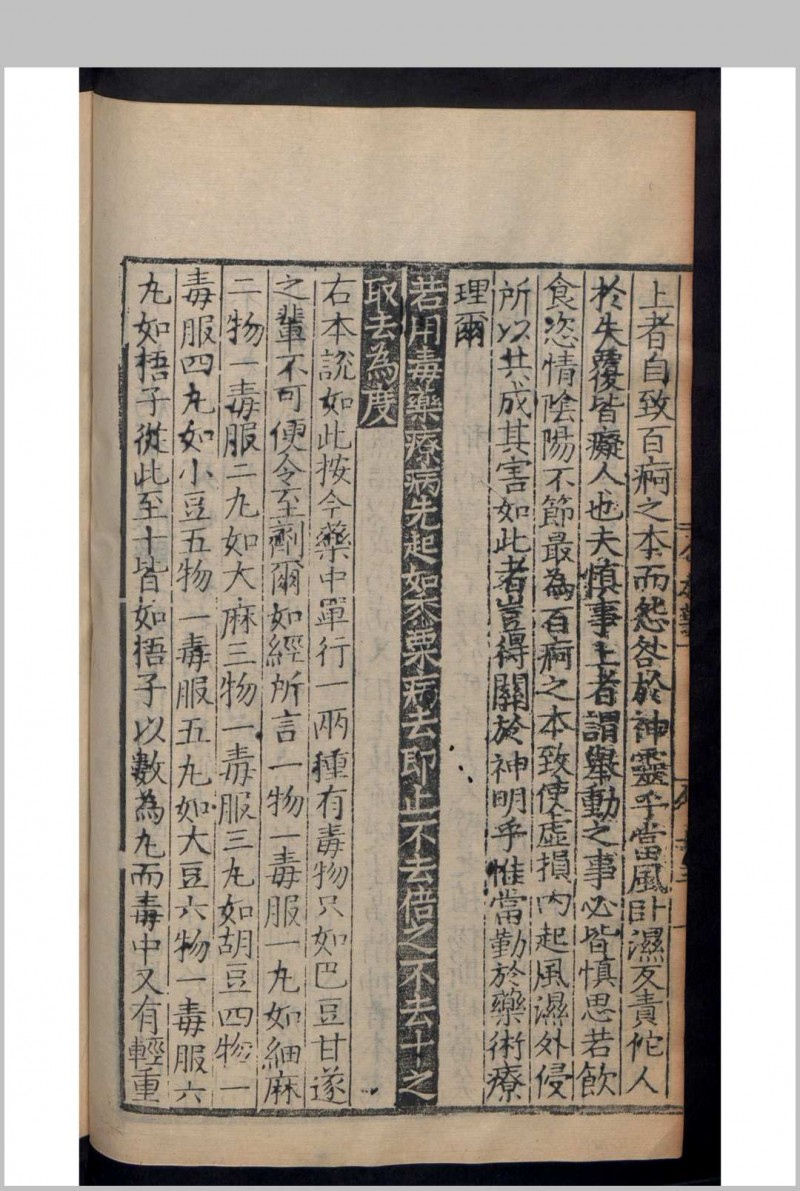 上者自致百痾之本而怨咎於神靈乎當風臥濕反責佗人
於失覆皆癡人也夫慎事上者謂舉動之事必皆慎思若飲
食恣情陰陽不節最為百痾之本致使虛損內起風濕外侵
所以共成其害如此者豈得關於神明乎惟當勤於藥術療
理爾
若用毒藥療病先起如黍粟病去即止不去倍之不去十之
取去為度
右本說如此按今藥中單行一兩種有毒物只如巴豆甘遂
之輩不可便令至劑爾如經所言一物一毒服一丸如細麻
二物一毒服二丸如大麻三物一毒服三丸如胡豆四物一
毒服四丸如小豆五物一毒服五丸如大豆六物一毒服六
丸如梧子從此至十皆如梧子以數為丸而毒中又有輕重